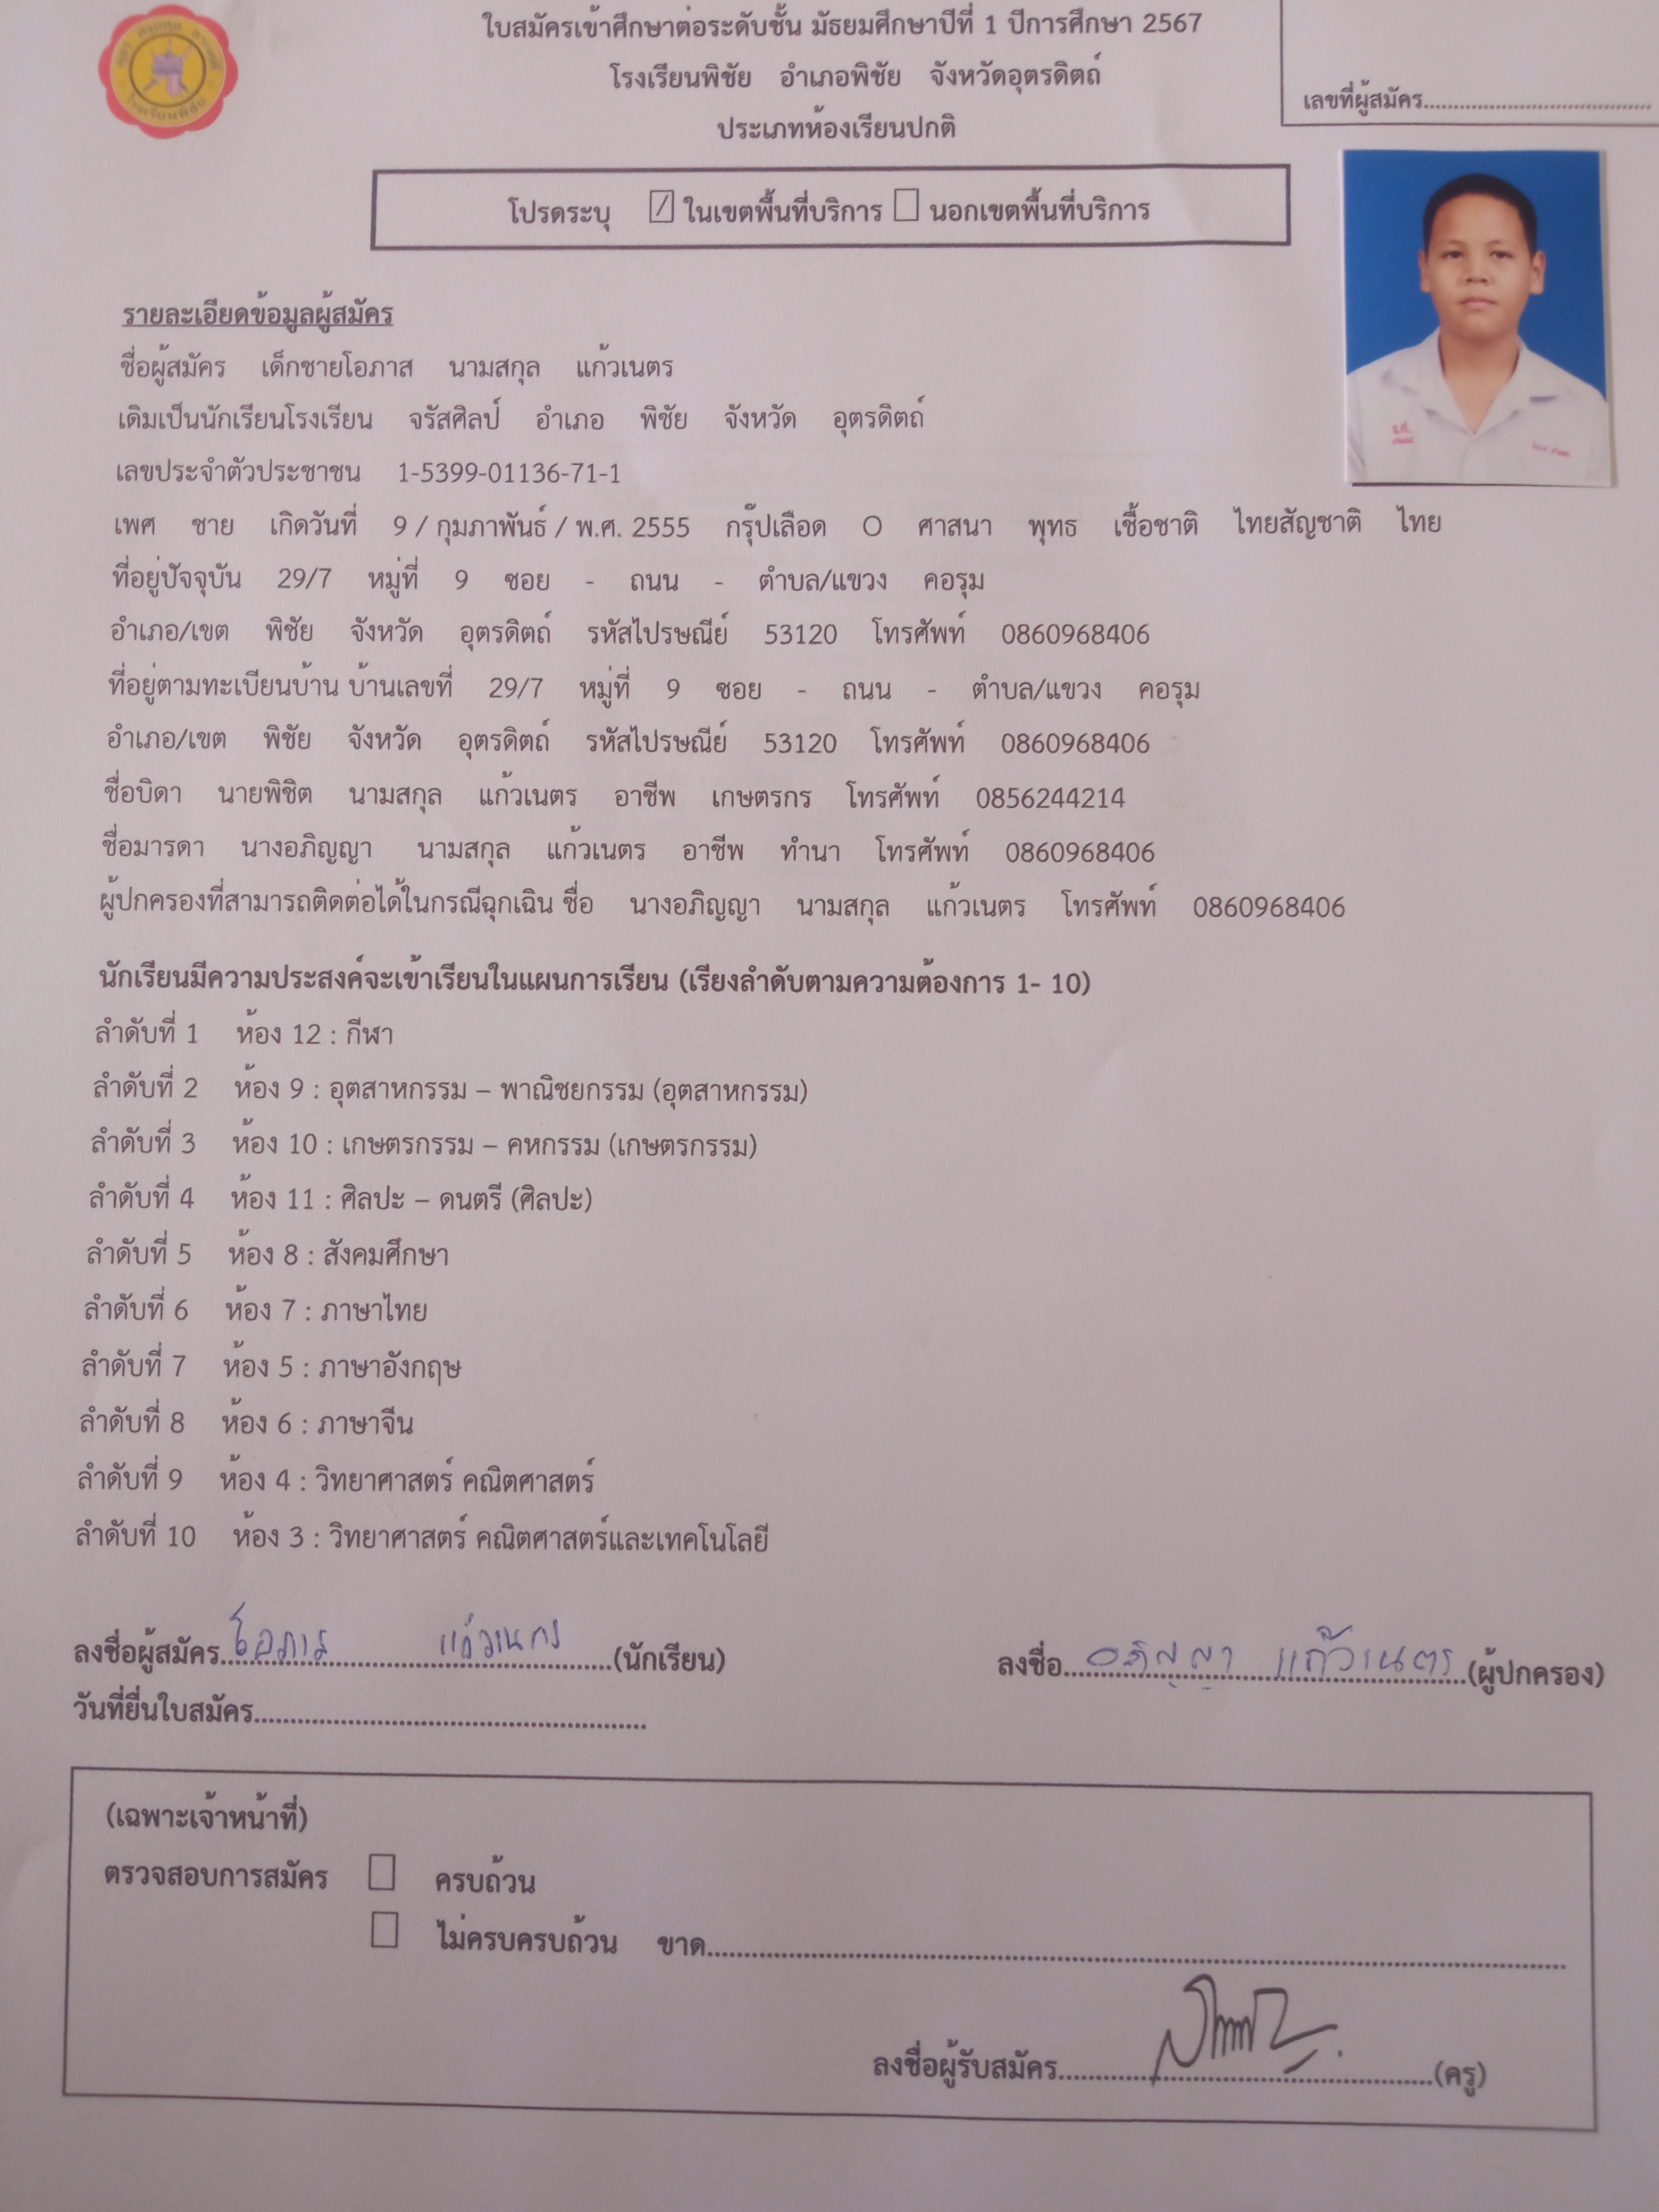 ใบสมัครเข้าศึกษาต่อระดับชั้น มัธยมศึกษาปีที่ 1 ปีการศึกษา 2567
โรงเรียนพิชัย อำเภอพิชัย จังหวัดอุตรดิตถ์
ประเภทห้องเรียนปกติ
เลขที่ผู้สมัคร
โรงเรียนพิชัย
โปรดระบุ ☑ ในเขตพื้นที่บริการ ☐ นอกเขตพื้นที่บริการ
รายละเอียดข้อมูลผู้สมัคร
ชื่อผู้สมัคร เด็กชายโอภาส นามสกุล แก้วเนตร
เดิมเป็นนักเรียนโรงเรียน จรัสศิลป์ อำเภอ พิชัย จังหวัด อุตรดิตถ์
เลขประจำตัวประชาชน 1-5399-01136-71-1
เพศ ชาย เกิดวันที่ 9 / กุมภาพันธ์ / พ.ศ. 2555 กรุ๊ปเลือด O ศาสนา พุทธ เชื้อชาติ ไทยสัญชาติ ไทย
ที่อยู่ปัจจุบัน 29/7 หมู่ที่ 9 ซอย - ถนน - ตำบล/แขวง คอรุม
อำเภอ/เขต พิชัย จังหวัด อุตรดิตถ์ รหัสไปรษณีย์ 53120 โทรศัพท์ 0860968406
ที่อยู่ตามทะเบียนบ้าน บ้านเลขที่ 29/7 หมู่ที่ 9 ซอย - ถนน - ตำบล/แขวง คอรุม
อำเภอ/เขต พิชัย จังหวัด อุตรดิตถ์ รหัสไปรษณีย์ 53120 โทรศัพท์ 0860968406
ชื่อบิดา นายพิชิต นามสกุล แก้วเนตร อาชีพ เกษตรกร โทรศัพท์ 0856244214
ชื่อมารดา นางอภิญญา นามสกุล แก้วเนตร อาชีพ ทำนา โทรศัพท์ 0860968406
ผู้ปกครองที่สามารถติดต่อได้ในกรณีฉุกเฉิน ชื่อ นางอภิญญา นามสกุล แก้วเนตร โทรศัพท์ 0860968406
นักเรียนมีความประสงค์จะเข้าเรียนในแผนการเรียน (เรียงลำดับตามความต้องการ 1- 10)
ลำดับที่ 1 ห้อง 12 : กีฬา
ลำดับที่ 2 ห้อง 9 : อุตสาหกรรม – พาณิชยกรรม (อุตสาหกรรม)
ลำดับที่ 3 ห้อง 10 : เกษตรกรรม – คหกรรม (เกษตรกรรม)
ลำดับที่ 4 ห้อง 11 : ศิลปะ – ดนตรี (ศิลปะ)
ลำดับที่ 5 ห้อง 8 : สังคมศึกษา
ลำดับที่ 6 ห้อง 7 : ภาษาไทย
ลำดับที่ 7 ห้อง 5 : ภาษาอังกฤษ
ลำดับที่ 8 ห้อง 6 : ภาษาจีน
ลำดับที่ 9 ห้อง 4 : วิทยาศาสตร์ คณิตศาสตร์
ลำดับที่ 10 ห้อง 3 : วิทยาศาสตร์ คณิตศาสตร์และเทคโนโลยี
ลงชื่อผู้สมัคร โอภาส แก้วเนตร (นักเรียน) ลงชื่อ อภิญญา แก้วเนตร (ผู้ปกครอง)
วันที่ยื่นใบสมัคร
(เฉพาะเจ้าหน้าที่)
ตรวจสอบการสมัคร ☐ ครบถ้วน
☐ ไม่ครบครบถ้วน ขาด
ลงชื่อผู้รับสมัคร (ครู)